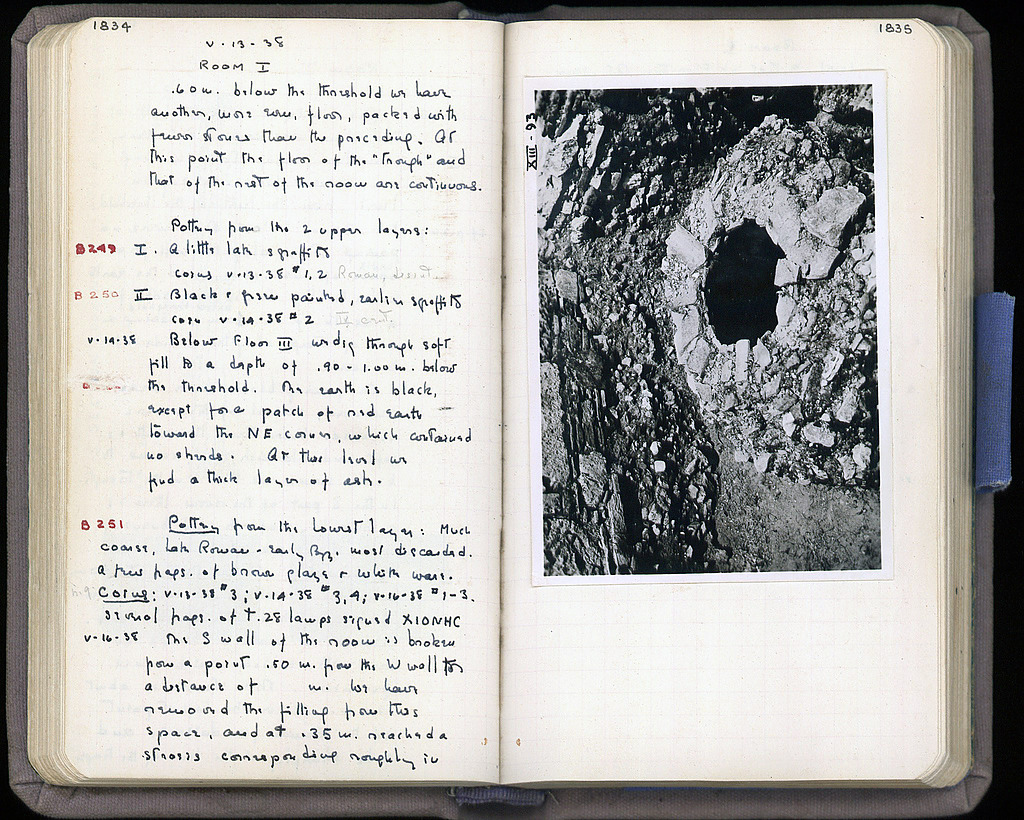 1834
V-13-38
ROOM I
.60 m. below the threshold we have
another, more even, floor, packed with
fewer stones than the preceding. At
this point the floor of the "trough" and
that of the rest of the room are continuous.
Pottery from the 2 upper layers:
B249 I. A little late sgraffito
coins V-13-38 #1,2 Roman,
B250 II Black & green painted, earlier sgraffito
coin V-14-38 #2 IV cent.
V-14-38 Below Floor III we dig through soft
fill to a depth of .90-1.00 m. below
the threshold. The earth is black,
except for a patch of red earth
toward the NE corner, which contained
no sherds. At this level we
find a thick layer of ash.
B251 Pottery from the lowest layer: Much
coarse, late Roman-early Byz. most discarded.
A few frags. of brown glaze & white ware.
Coins: V-13-38 #3; V-14-38 #3,4; V-16-38 #1-3.
Several frags. of T.28 lamps signed XIONHC
V-16-38 The S wall of the room is broken
from a point .50 m. from the W wall for
a distance of m. We have
removed the filling from this
space, and at .35 m. reached a
strosis corresponding roughly in
1835
XIII-93